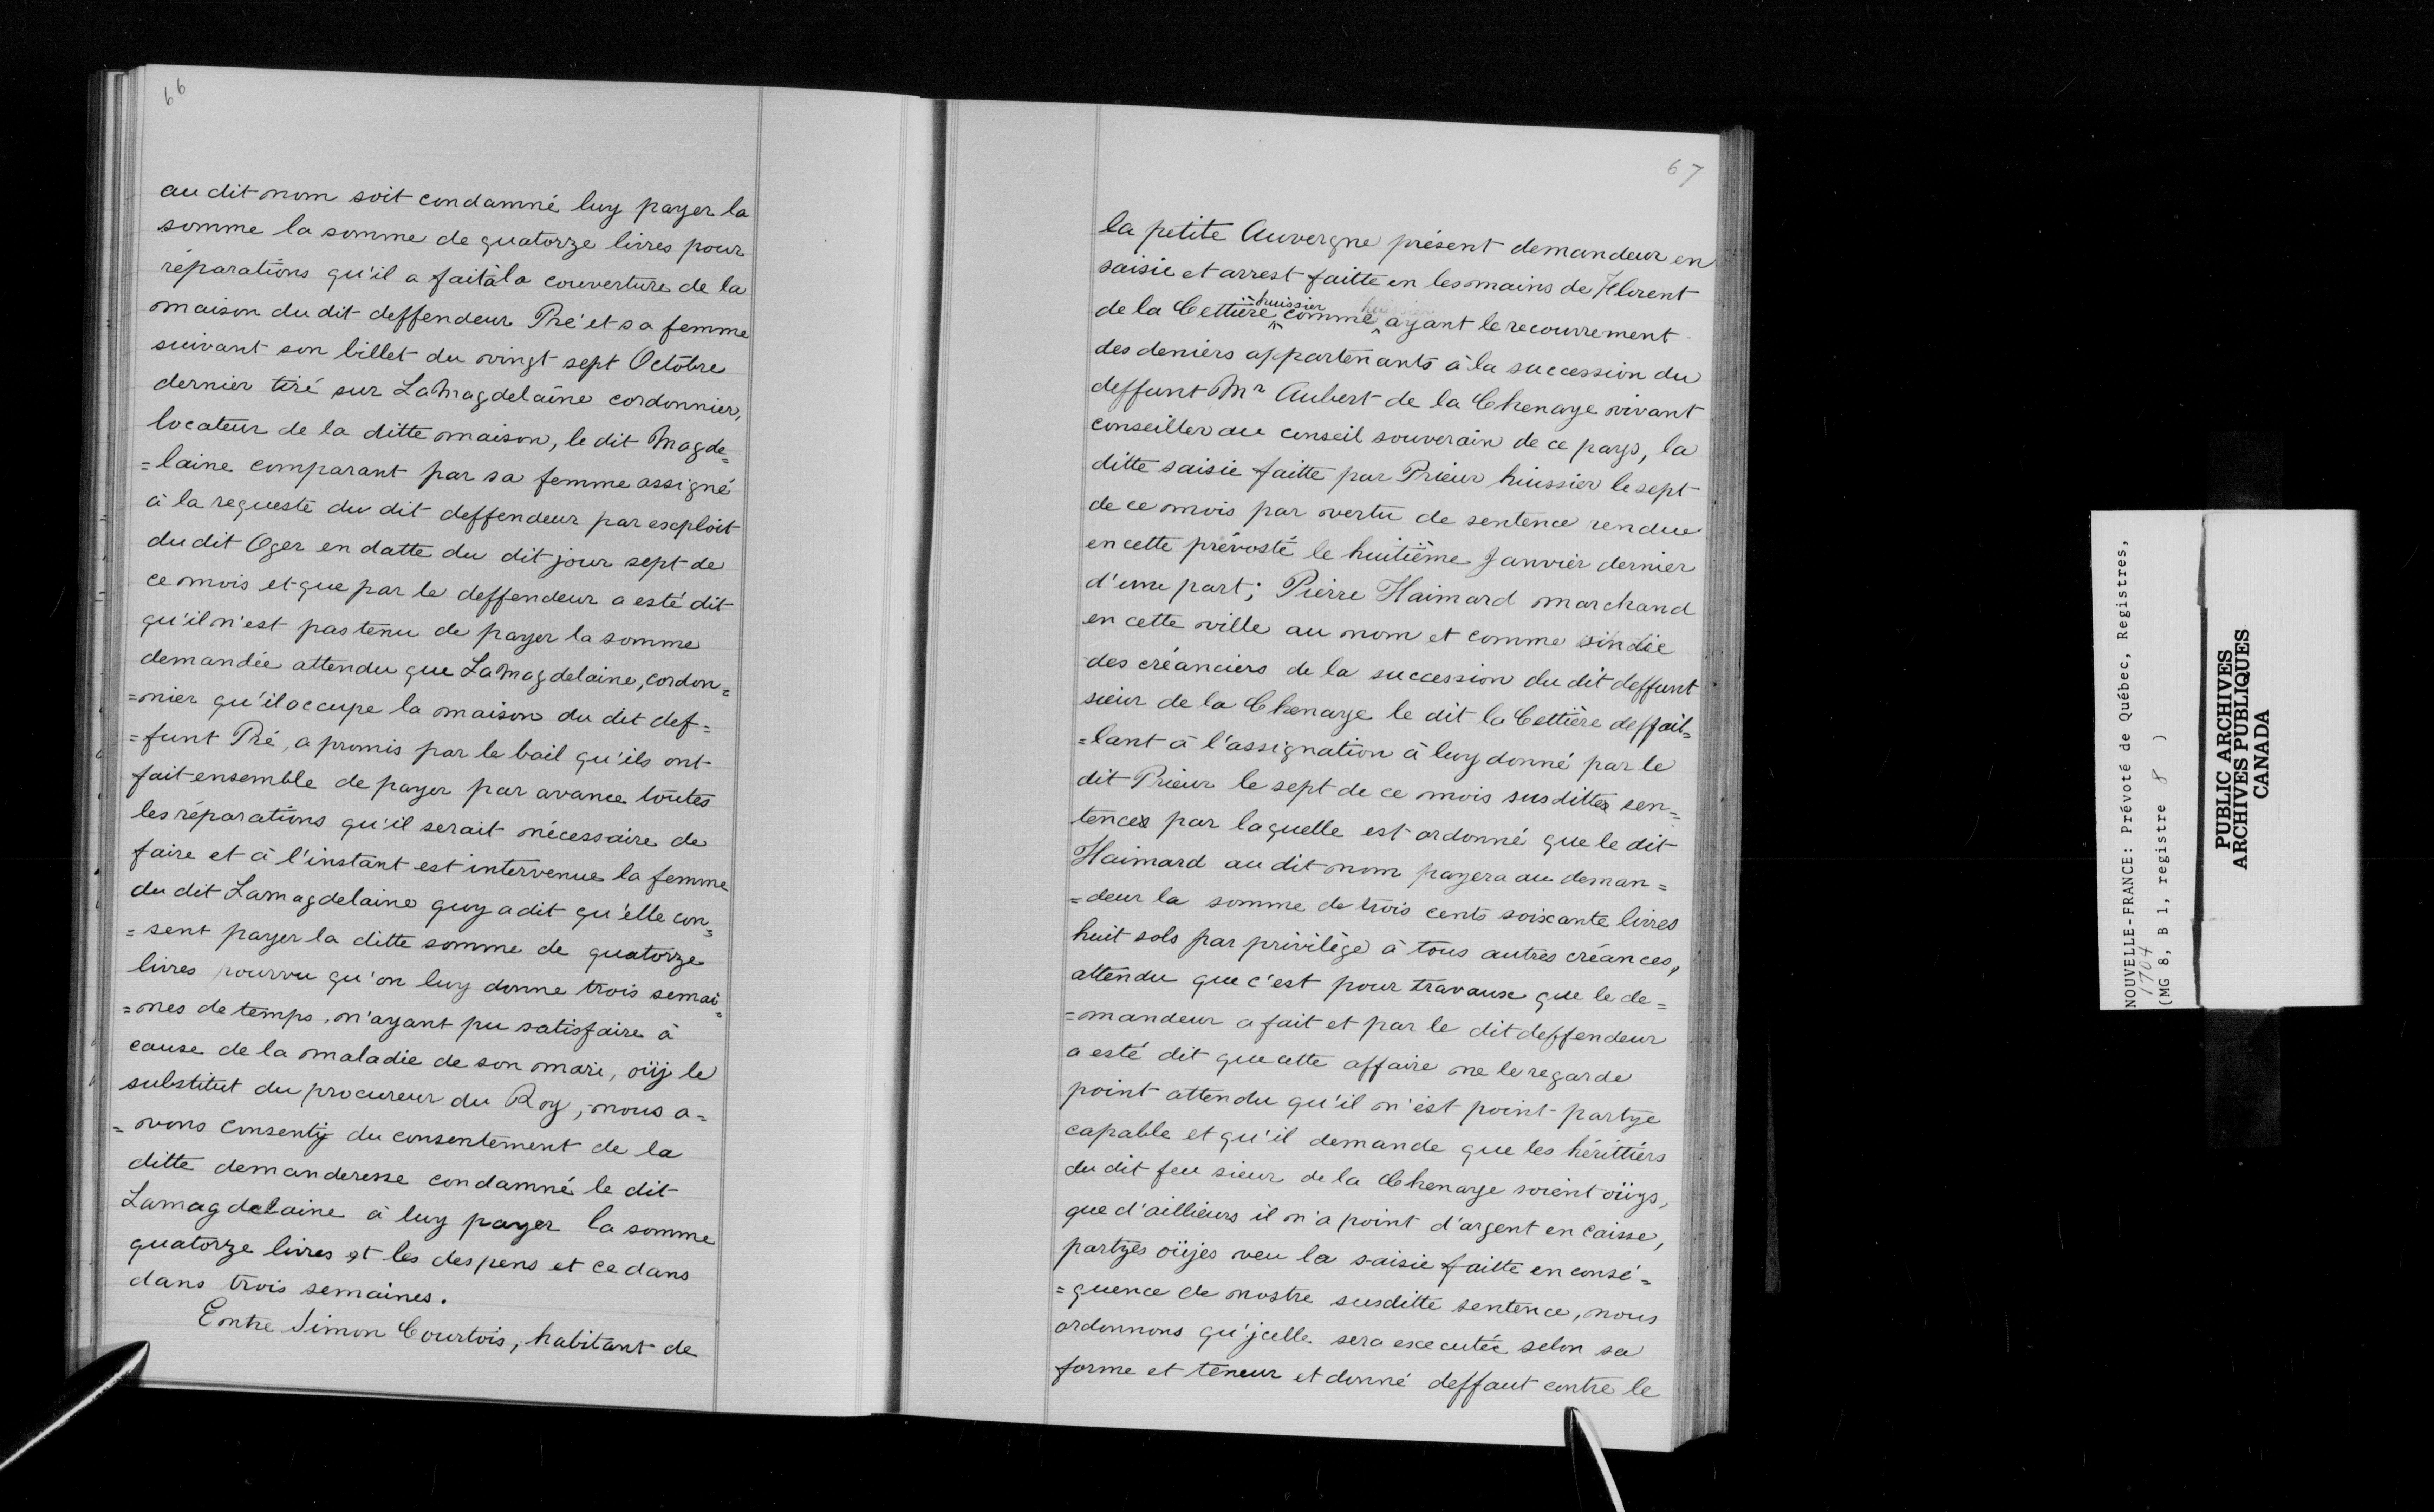 66
au dit nom soit condamné luy payer la
somme la somme de quatorze livres pour
réparations qu'il a fait à la couverture de la
maison du dit deffendeur Pré et sa femme
suivant son billet du vingt sept Octobre
dernier tiré sur LaMagdelaine cordonnier,
locateur de la ditte maison, le dit Magde=
=laine comparant par sa femme assigné
à la requeste du dit deffendeur par exploit
du dit Oger en datte du dit jour sept de
ce mois et que par le deffendeur a esté dit
qu'il n'est pas tenu de payer la somme
demandée attendu que LaMagdelaine, cordon=
=nier qu'il occupe la maison du dit def=
=funt Pré, a promis par le bail qu'ils ont
fait ensemble de payer par avance toutes
les réparations qu'il serait nécessaire de
faire et à l'instant est intervenue la femme
du dit Lamagdelaine quy a dit qu'elle con=
=sent payer la ditte somme de quatorze
livres pourvu qu'on luy donne trois semai=
=nes de temps, n'ayant pu satisfaire à
cause de la maladie de son mari, oüy le
substitut du procureur du Roy, nous a=
=vons consenty du consentement de la
ditte demanderesse condamné le dit
Lamagdelaine à luy payer la somme
quatorze livres et les despens et ce dans
dans trois semaines.
Entre Simon Courtois, habitant de
67
la petite Auvergne présent demandeur en
saisie et arrest faitte en les mains de Florent
de la Cettière huissier comme ayant le recouvrement
des deniers appartenants à la succession du
deffunt Mr Aubert de la Chenaye vivant
conseiller au conseil souverain de ce pays, la
ditte saisie faitte par Prieur huissier le sept
de ce mois par vertu de sentence rendue
en cette prévosté le huitième Janvier dernier
d'une part; Pierre Haimard marchand
en cette ville au nom et comme sindic
des créanciers de la succession du dit deffunt
sieur de la Chenaye le dit la Cettière deffail=
=lant à l'assignation à luy donné par le
dit Prieur le sept de ce mois susditte sen=
tence par laquelle est ordonné que le dit
Haimard au dit nom payera au deman=
=deur la somme de trois cents soixante livres
huit sols par privilège à tous autres créances,
attendu que c'est pour travaux que le de=
=mandeur a fait et par le dit deffendeur
a esté dit que cette affaire ne le regarde
point attendu qu'il n'est point partye
capable et qu'il demande que les hérittiers
du dit feu sieur de la Chenaye soient oüys,
que d'aillieurs il n'a point d'argent en caisse,
partyes oüjes veu la saisie faitte en consé=
=quence de nostre susditte sentence, nous
ordonnons qu'jcelle sera executée selon sa
forme et teneur et donné deffaut contre le
NOUVELLE-FRANCE: Prévoté de Québec, Registres,
1704
(MG 8, B 1, registre 8 )
PUBLIC ARCHIVES
ARCHIVES PUBLIQUES
CANADA